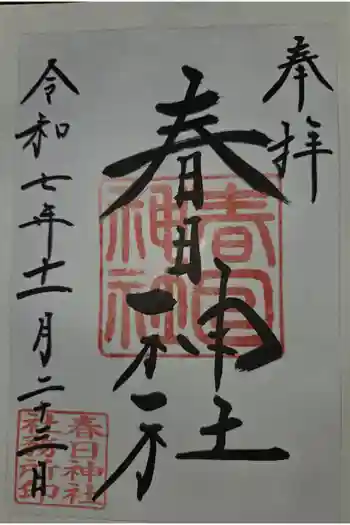 奉拝
春日神社
令和七年十一月二十三日
春日神社
社務所印